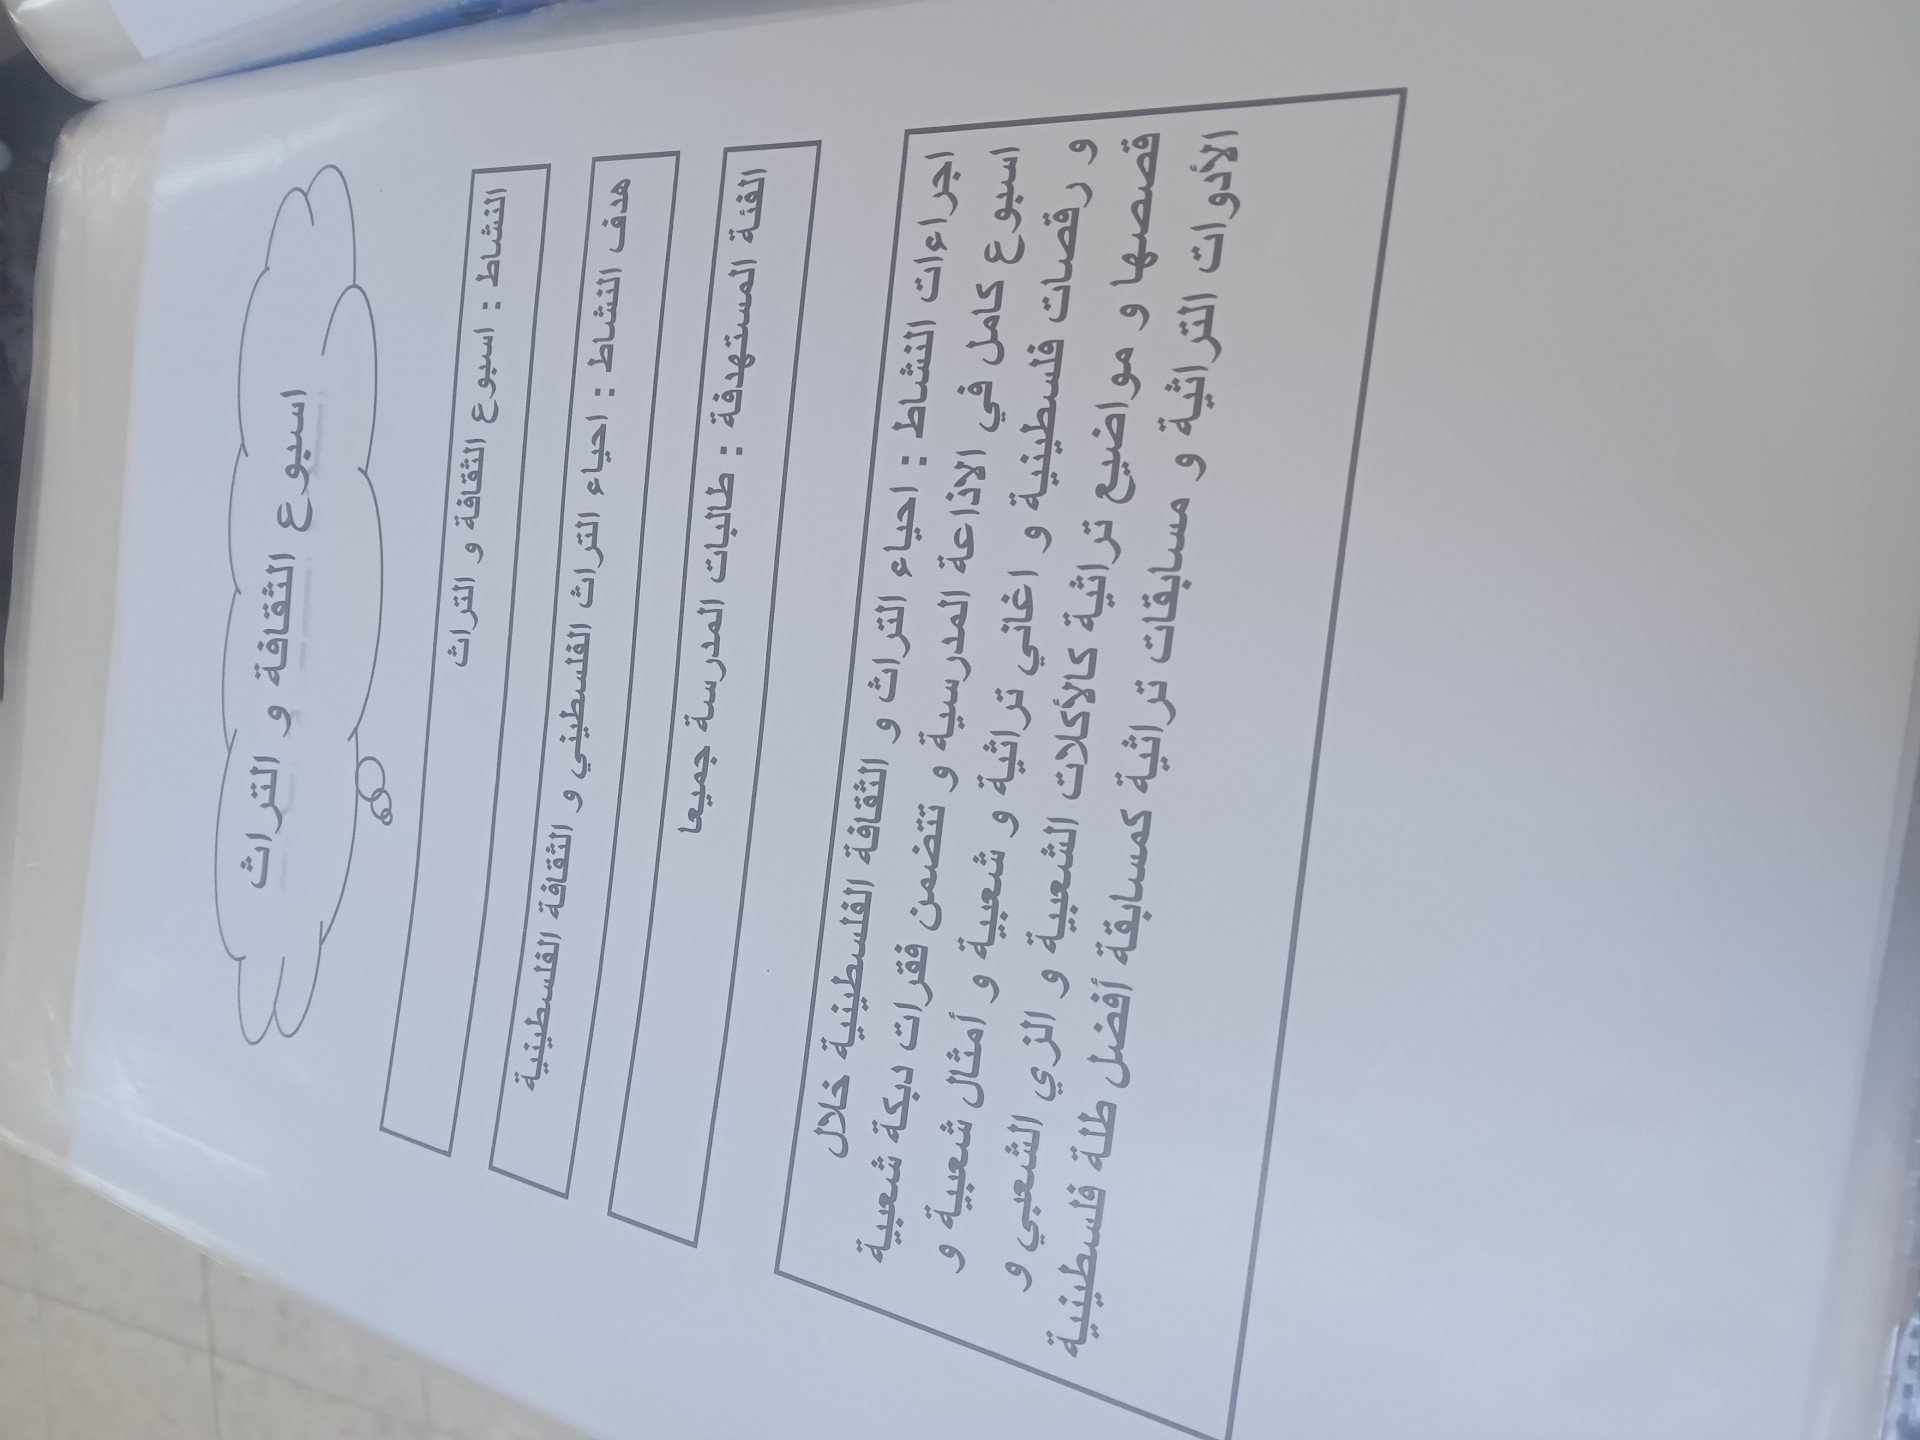 اسبوع الثقافة و التراث
النشاط : اسبوع الثقافة و التراث
هدف النشاط : احياء التراث الفلسطيني و الثقافة الفلسطينية
الفئة المستهدفة : طالبات المدرسة جميعا
اجراءات النشاط : احياء التراث و الثقافة الفلسطينية خلال
اسبوع كامل في الاذاعة المدرسية و تتضمن فقرات دبكة شعبية
و رقصات فلسطينية و اغاني تراثية و شعبية و أمثال شعبية و
قصصها و مواضيع تراثية كالأكلات الشعبية و الزي الشعبي و
الأدوات التراثية و مسابقات تراثية كمسابقة أفضل طلة فلسطينية